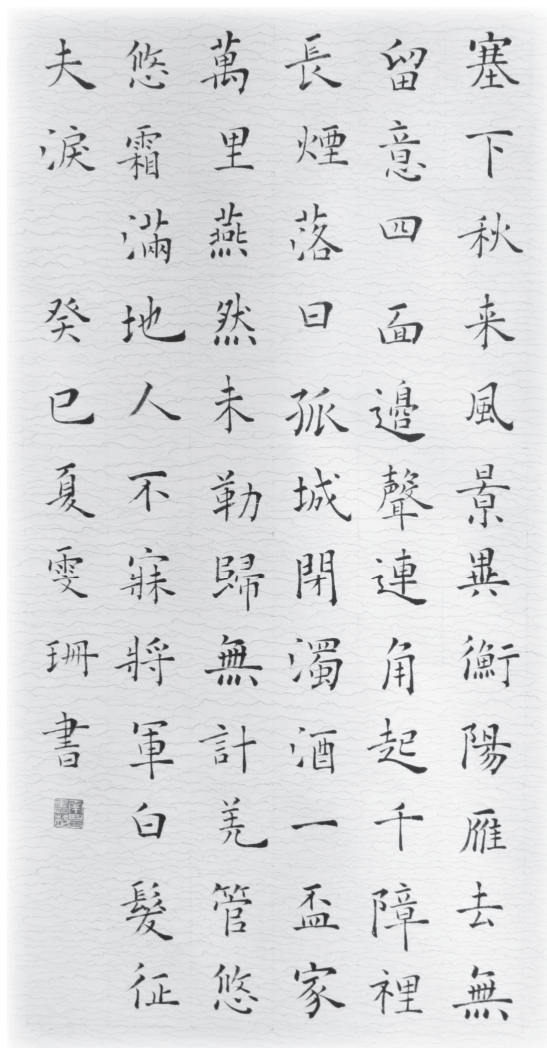 塞下秋来風景異衡陽雁去無
留意四面邊聲連角起千障裡
長煙落日孤城閉濁酒一盃家
萬里燕然未勒歸無計羌管悠
悠霜滿地人不寐將軍白髮征
夫淚 癸巳夏雯珊書